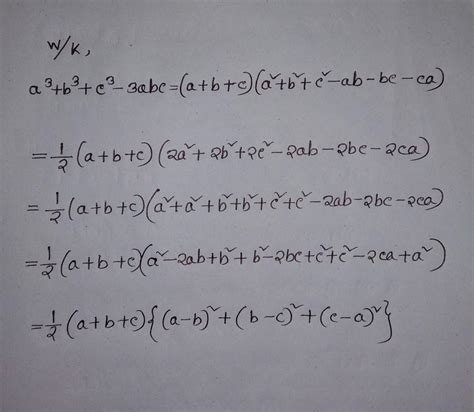 W/K,
a³+b³+c³-3abc=(a+b+c)(a²+b²+c²-ab-bc-ca)
=½(a+b+c)(2a²+2b²+2c²-2ab-2bc-2ca)
=½(a+b+c)(a²+a²+b²+b²+c²+c²-2ab-2bc-2ca)
=½(a+b+c)(a²-2ab+b²+b²-2bc+c²+c²-2ca+a²)
=½(a+b+c){(a-b)²+(b-c)²+(c-a)²}